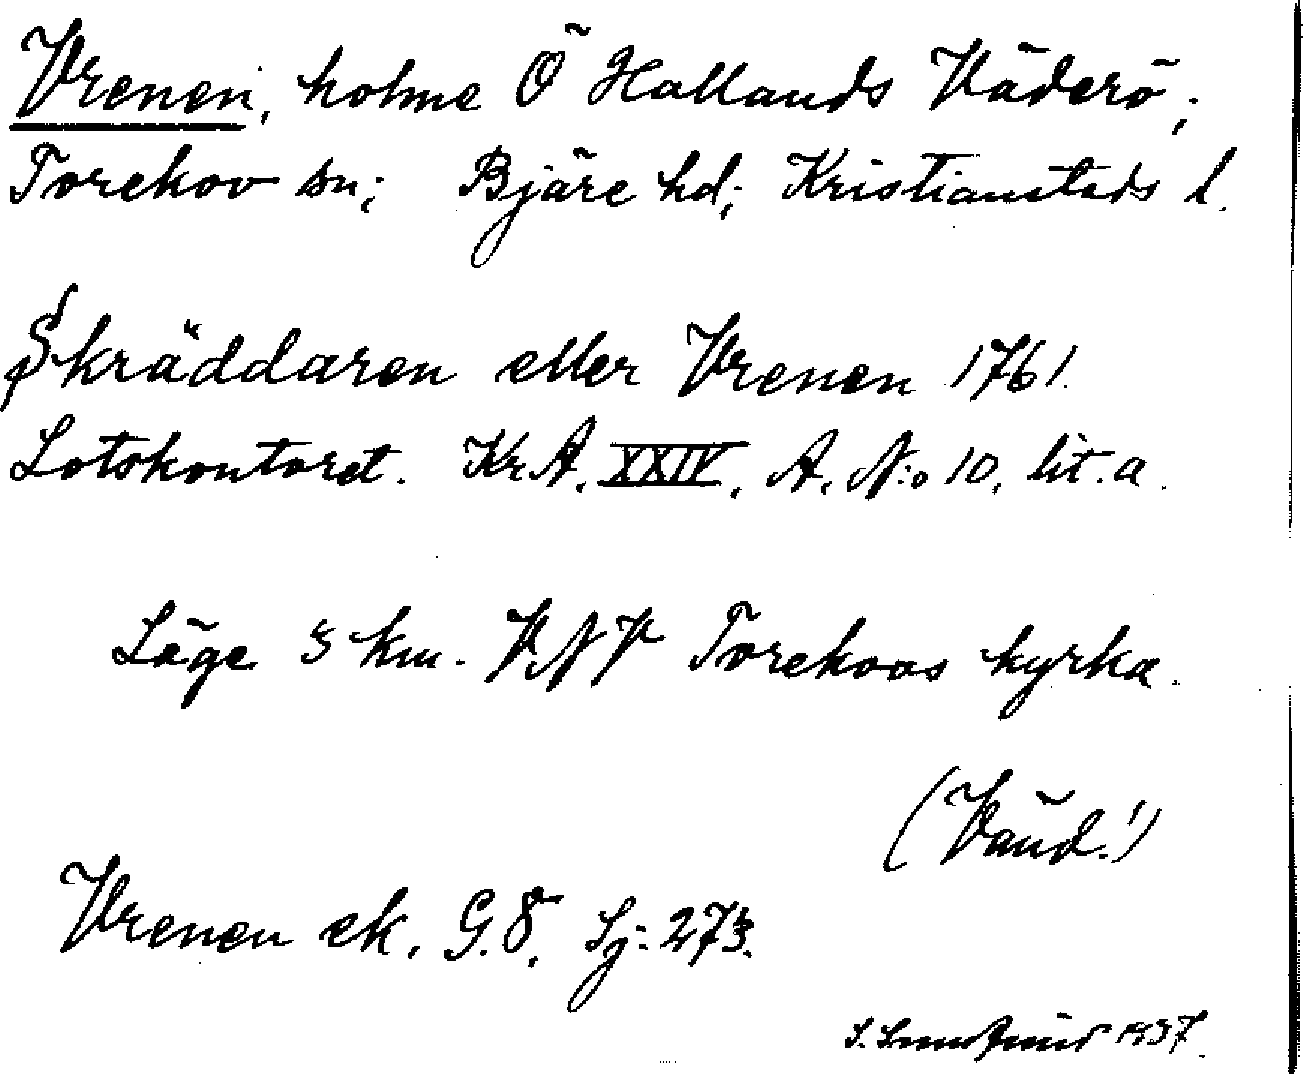 Vrenen, holme Ö Hallands Väderö;
Torekov sn; Bjäre hd; Kristianstads l.
Skräddaren eller Vrenen 1761.
Lotskontoret. Kr.A. XXIV, A, N:o 10, lit. a.
Läge 5 km. VNV Torekovs kyrka.
(Vänd!)
Vrenen ek. G.8. Sj: 273.
1937